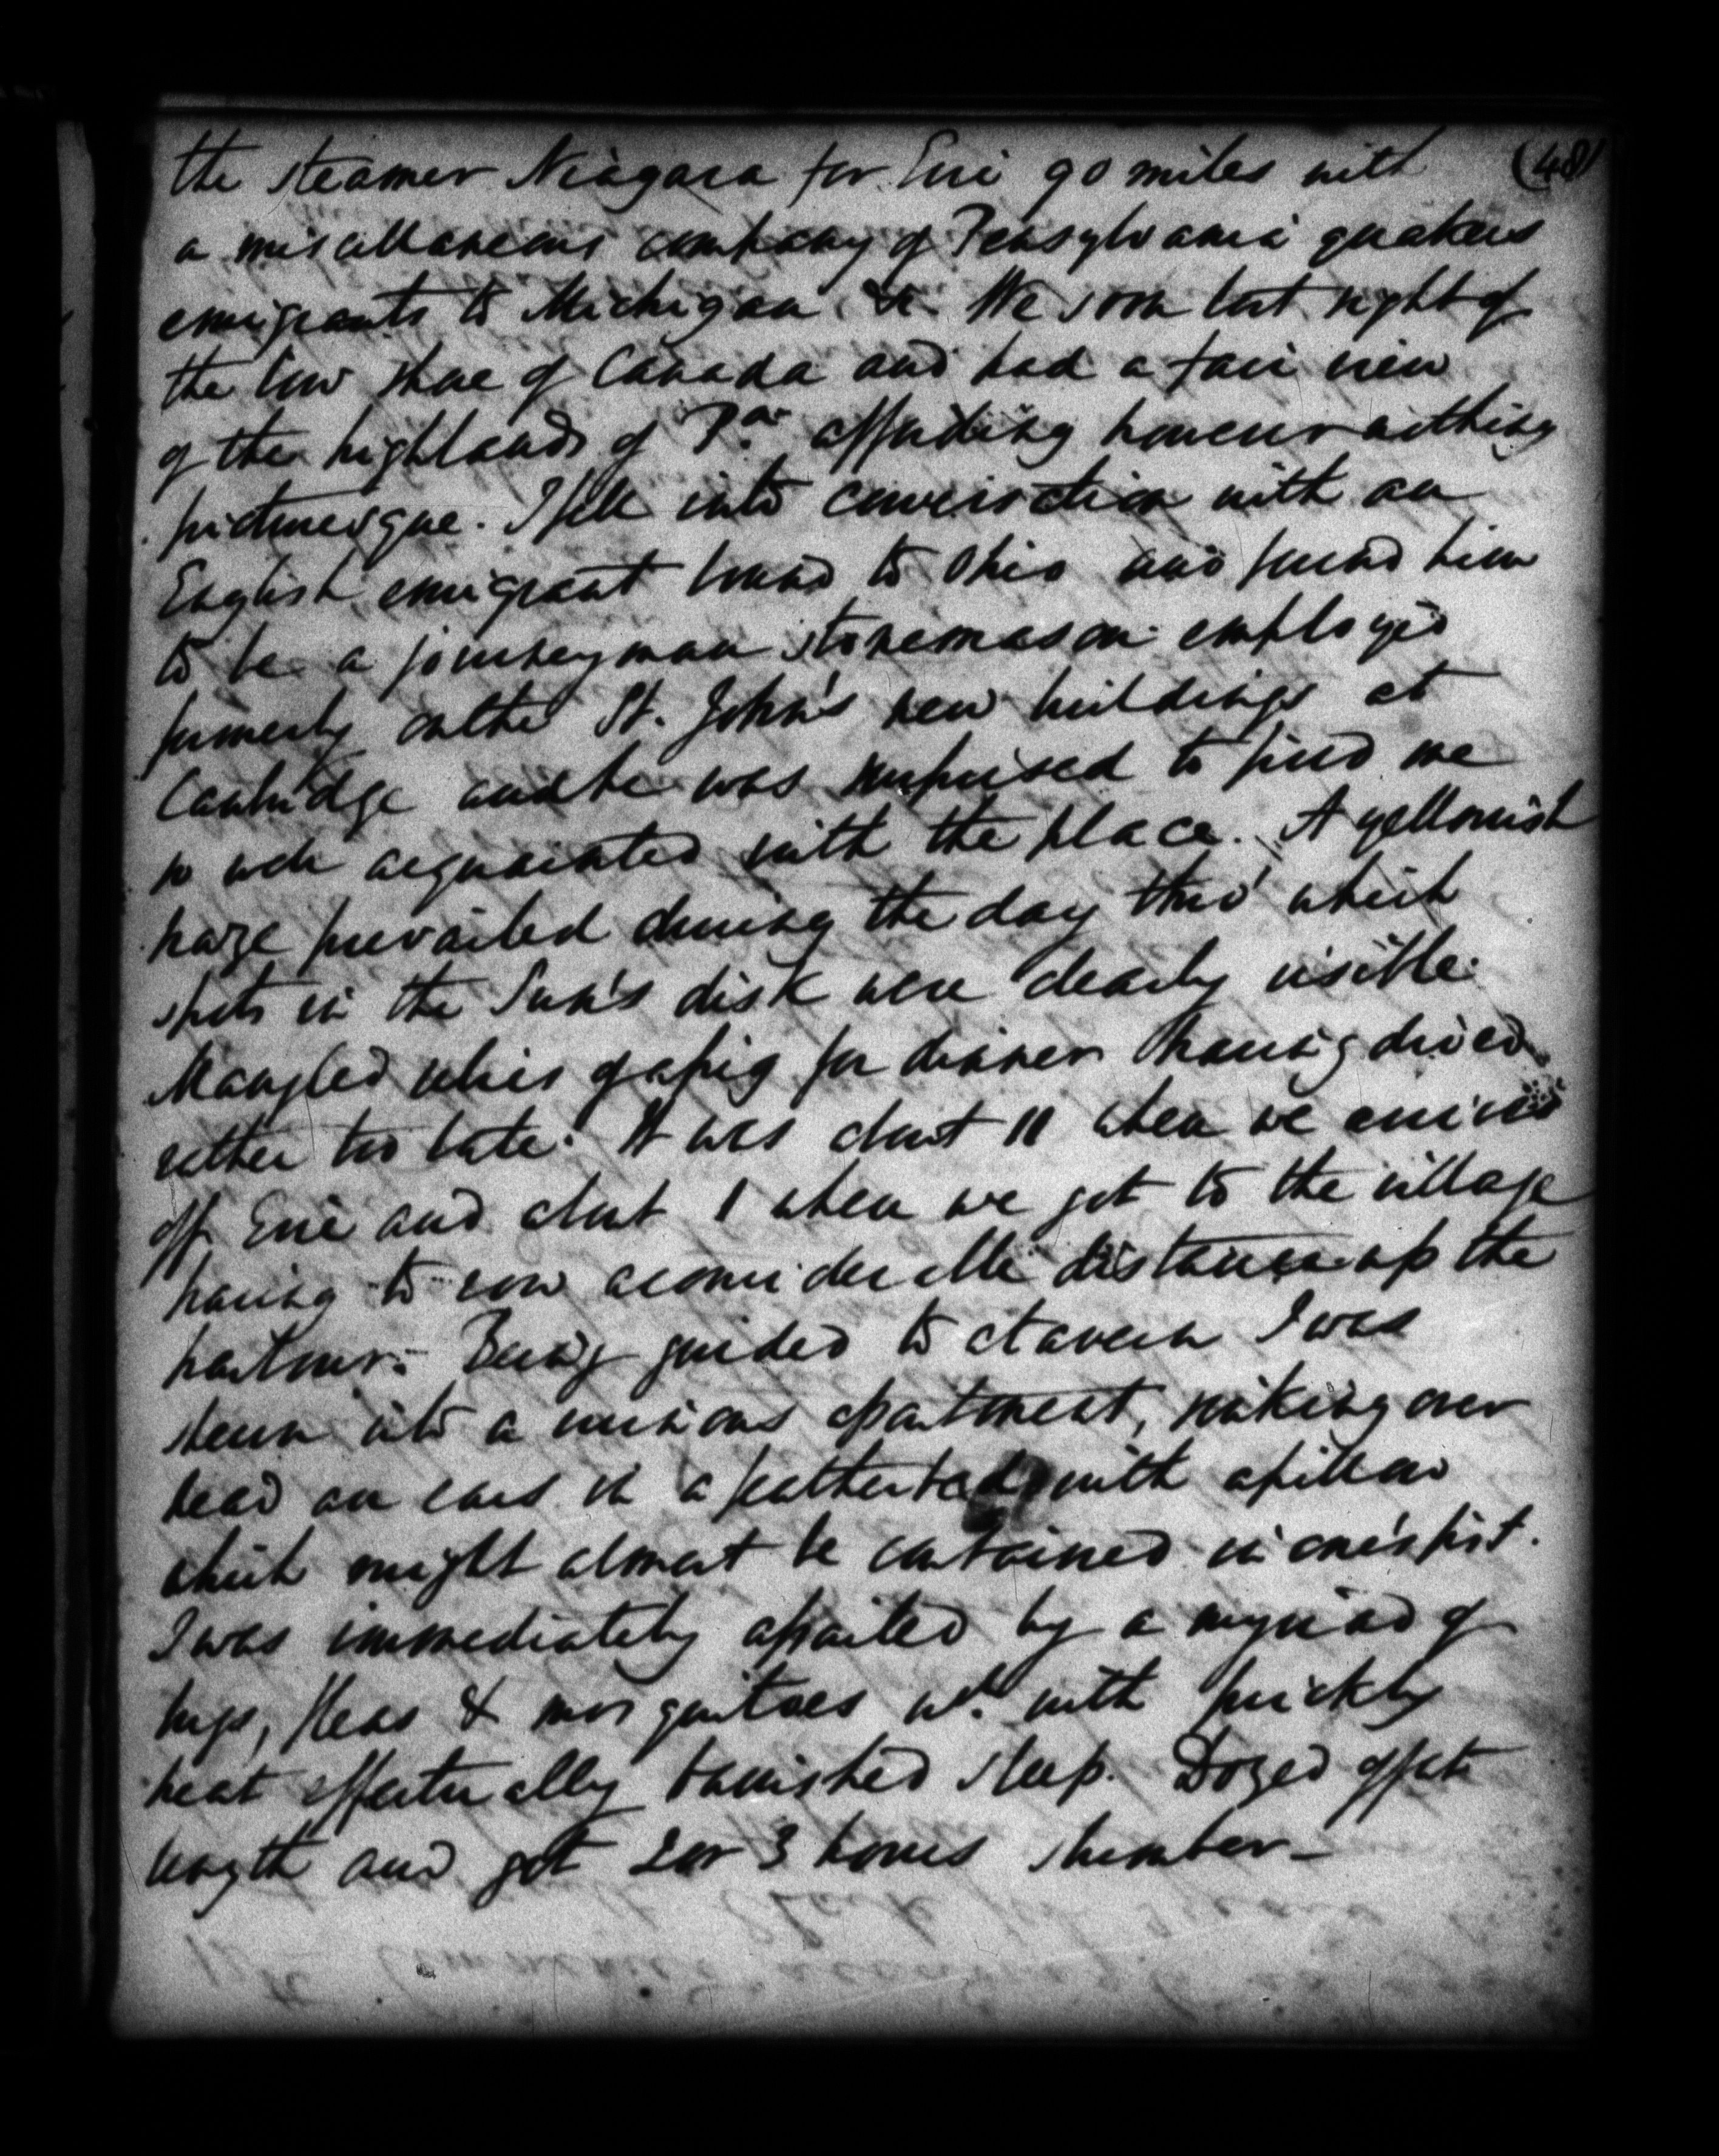 (48)
the steamer Niagara for Erie 90 miles with
a miscellaneous company of Pensylvania quakers
emigrants to Michigan &c. We soon lost sight of
the low shore of Canada and had a fair view
of the highlands of Pa. affording however nothing
picturesque. I fell into conversation with an
English emigrant bound to Ohio and found him
to be a journeyman stonemason employed
formerly on the St. John's new buildings at
Cambridge and he was surprised to find me
so well acquainted with the place. A yellowish
haze prevailed during the day thro' which
spots in the Sun's disk were clearly visible.
Mangled for dinner having dined
rather too late. It was about 11 when we arrived
off Erie and about 1 when we got to the village
having to row a considerable distance up the
harbour. Being guided to a tavern I was
shewn into a curious apartment, sinking over
head an ears in a featherbed with a pillow
which might almost be contained in one's fist.
I was immediately assailed by a myriad of
bugs, fleas & mosquitoes wh. with prickly
heat effectually banished sleep. Dozed off at
length and got 2 or 3 hours slumber_